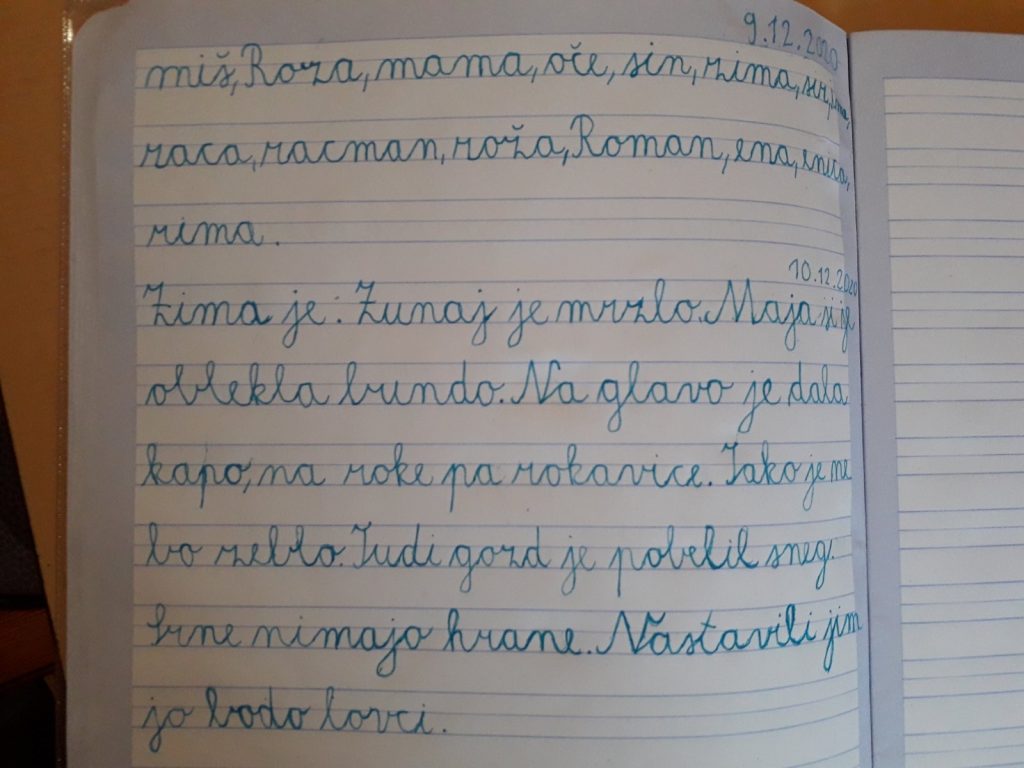 9.12.2020
miš, Roza, mama, oče, sin, zima, sir,
raca, racman, roža, Roman, ena, enica,
rima.
10.12.2020
Zima je. Zunaj je mrzlo. Maja si je
oblekla bundo. Na glavo je dala
kapo, na roke pa rokavice. Tako je ne
bo zeblo. Tudi gozd je pobelil sneg.
Srne nimajo hrane. Nastavili jim
jo bodo lovci.